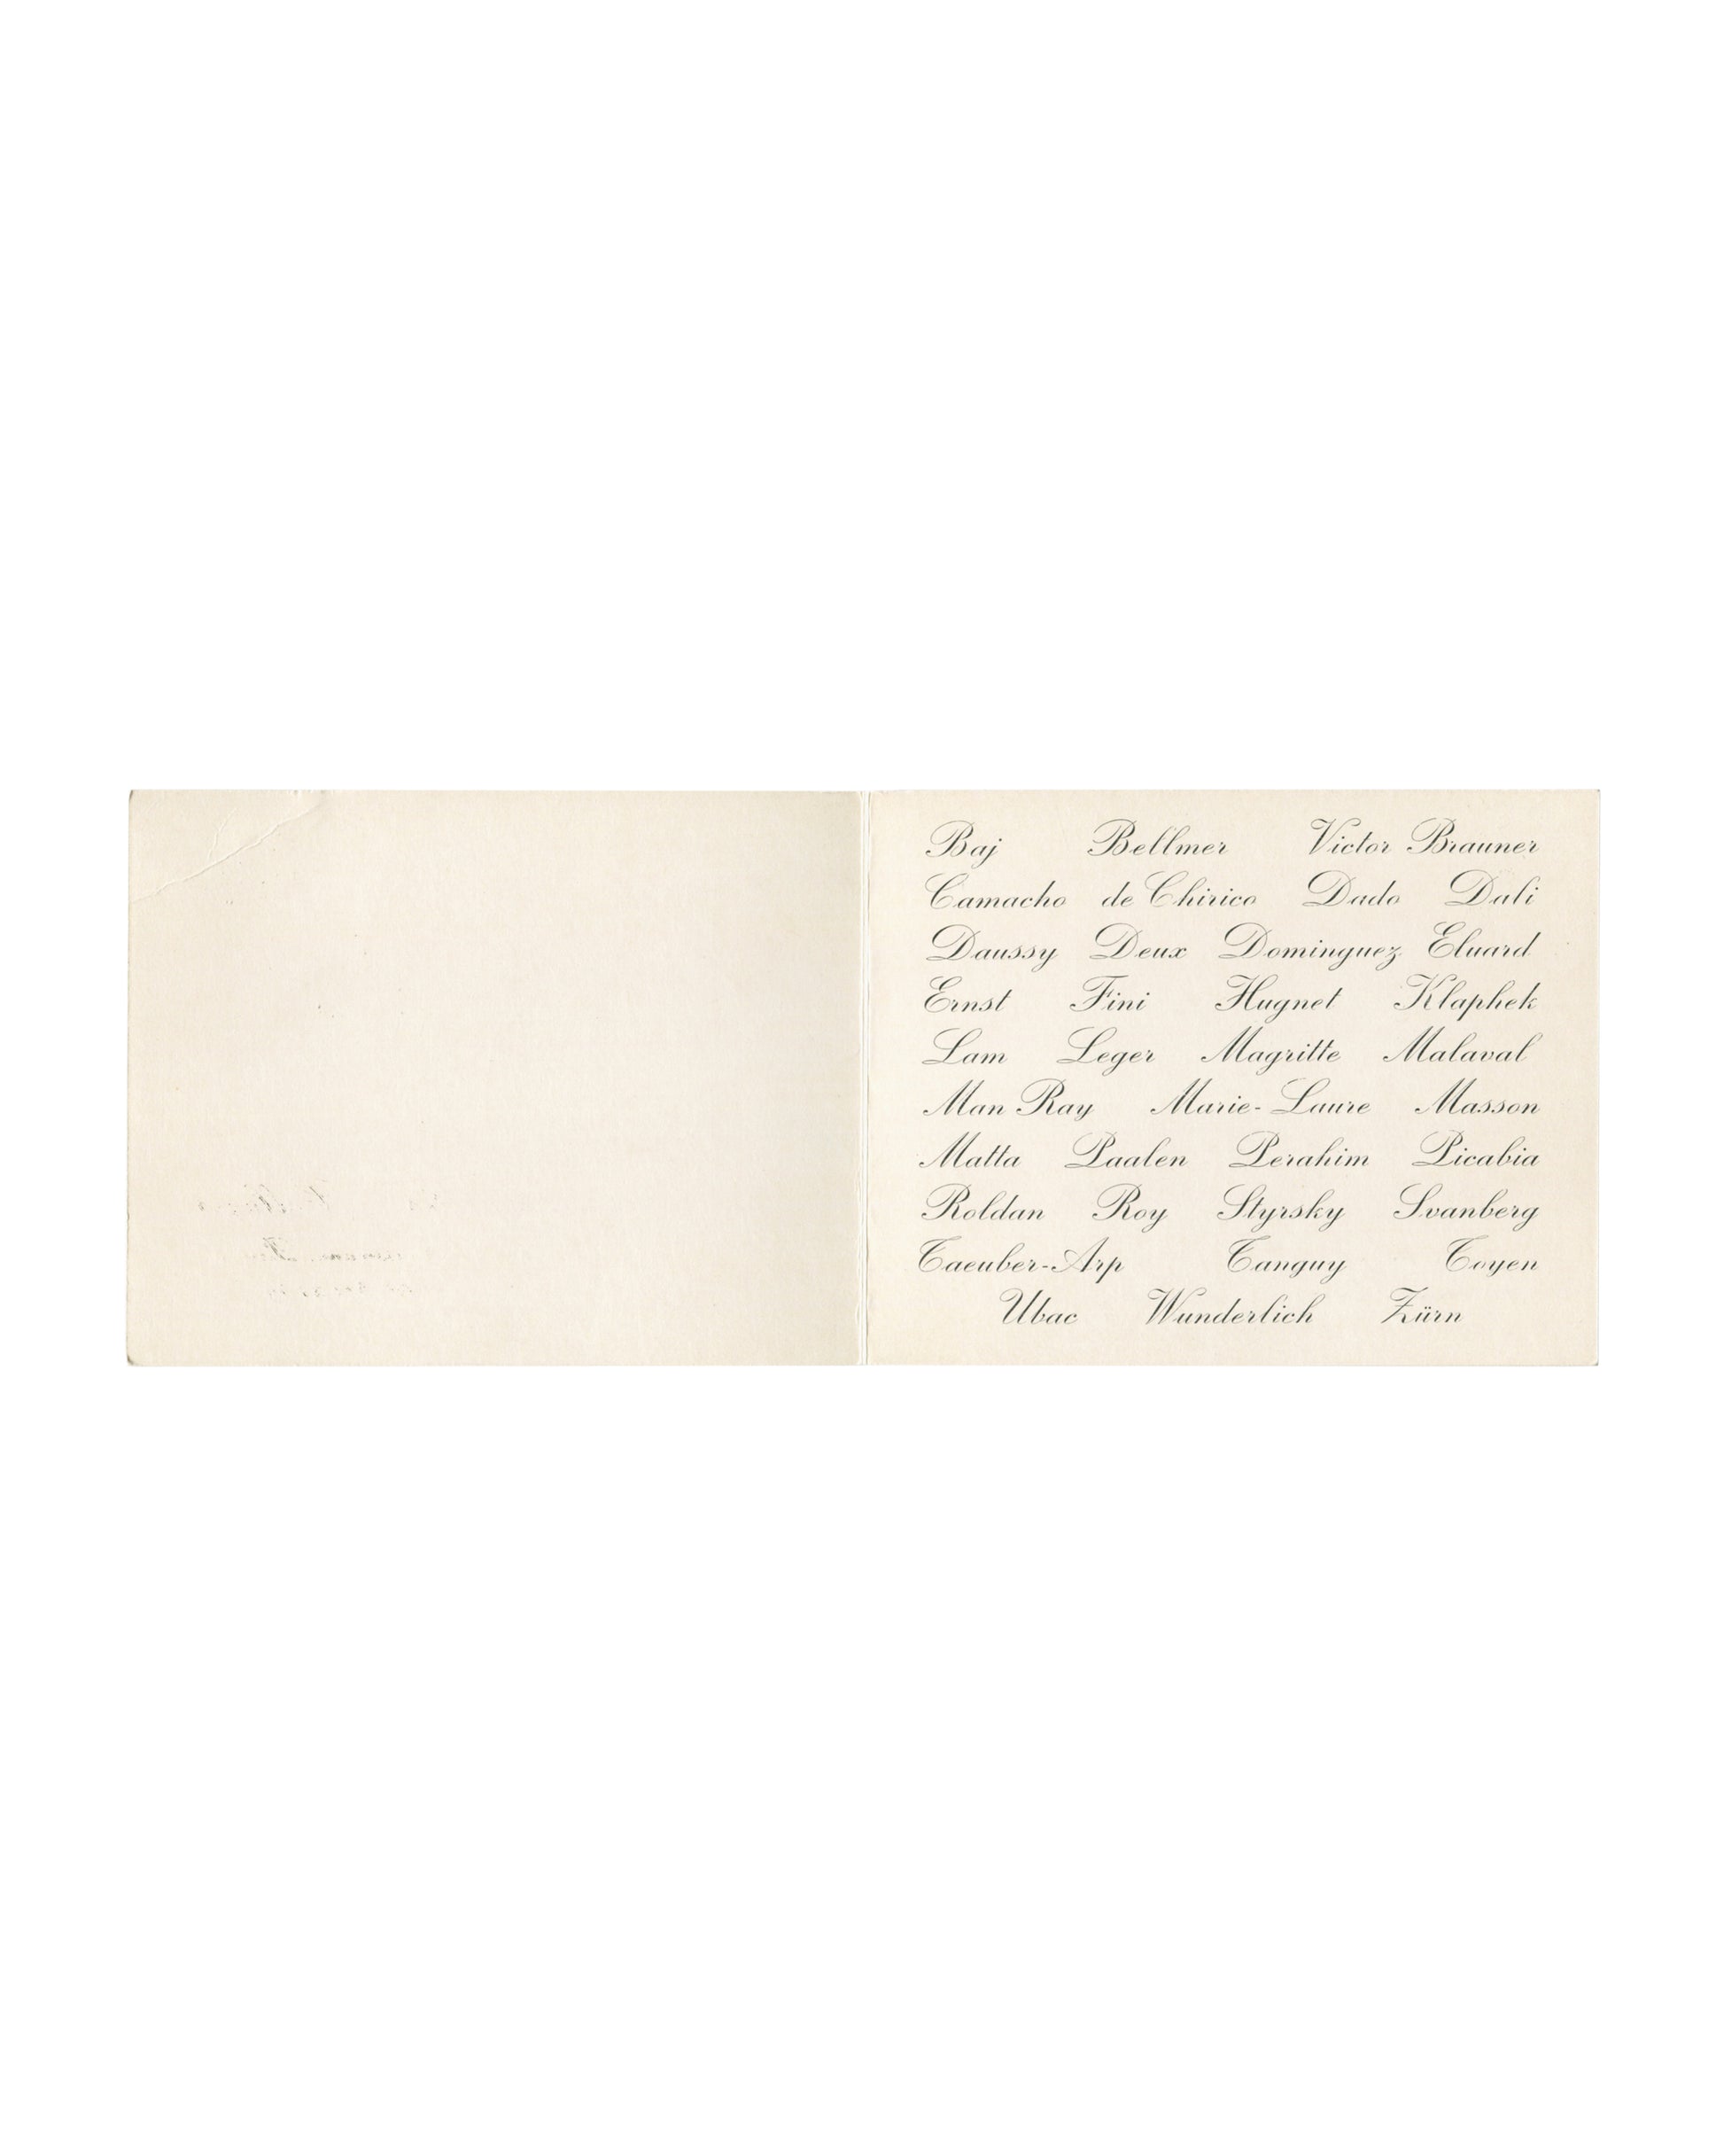 Baj Bellmer Victor Brauner
Camacho de Chirico Dado Dali
Daussy Deux Dominguez Eluard
Ernst Fini Hugnet Klaphek
Lam Leger Magritte Malaval
Man Ray Marie-Laure Masson
Matta Paalen Perahim Picabia
Roldan Roy Styrsky Svanberg
Taeuber-Arp Tanguy Toyen
Ubac Wunderlich Zürn